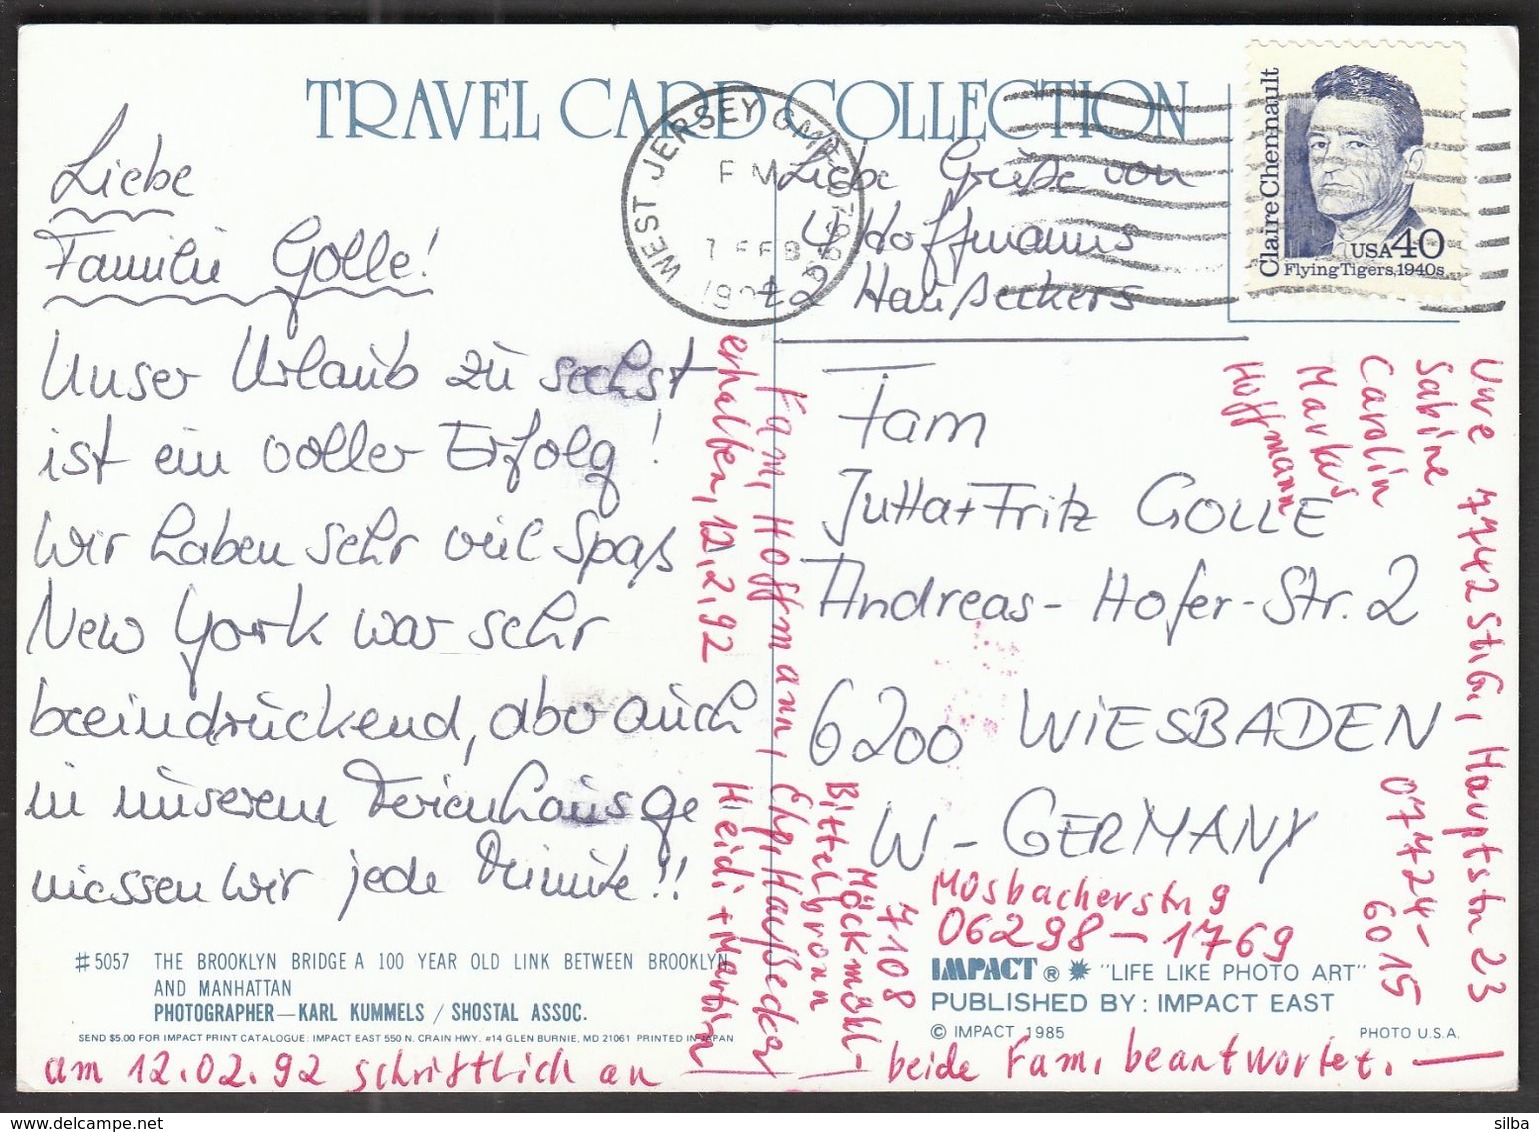 TRAVEL CARD COLLECTION
Liebe
Familie Golle!
Unser Urlaub zu sechst
ist ein voller Erfolg!
Wir haben sehr viel Spaß
New York war sehr
beeindruckend, aber auch
in unserem Ferienhaus ge
niessen wir jede Minute!!
Liebe Grüße von
4 Hoffmanns
+2 Haußeckers
WEST JERSEY GMF
PM
7 FEB
Claire Chennault
USA 40
Flying Tigers, 1940s
Fam
Jutta+Fritz GOLLE
Andreas-Hofer-Str. 2
6200 WIESBADEN
W-GERMANY
erhalten, 12.2.92
Fam, Hoffmann, Ehp, Haußecker
Heidi + Martin
Bittelbronn
7108
Möckmühl-
Mosbacherstr 9
06298-1769
Uwe
Sabine
Carolin
Markus
Hoffmann
7742 St. G., Hauptstr 23
07724-
6015
am 12.02.92 schriftlich an beide Fam, beantwortet.
#5057 THE BROOKLYN BRIDGE A 100 YEAR OLD LINK BETWEEN BROOKLYN
AND MANHATTAN
PHOTOGRAPHER—KARL KUMMELS / SHOSTAL ASSOC.
SEND $5.00 FOR IMPACT PRINT CATALOGUE: IMPACT EAST 550 N. CRAIN HWY. #14 GLEN BURNIE, MD 21061 PRINTED IN JAPAN
IMPACT ® "LIFE LIKE PHOTO ART"
PUBLISHED BY: IMPACT EAST
© IMPACT 1985
PHOTO U.S.A.
www.delcampe.net
silba